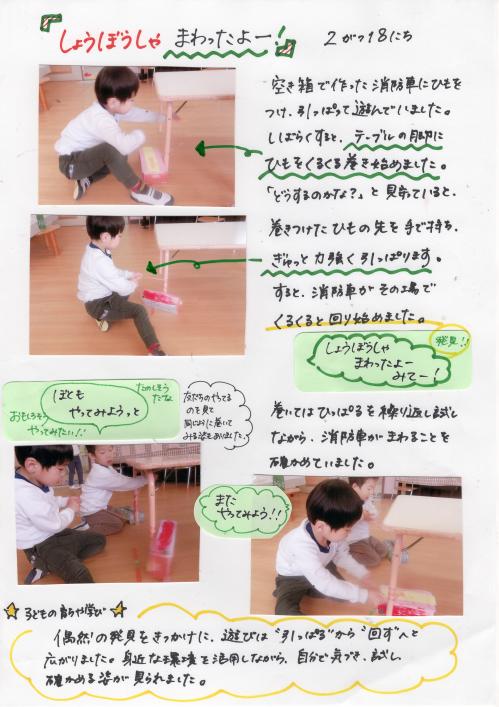 しょうぼうしゃ まわったよー! 2がつ18にち
空き箱で作った消防車にひもを
つけ、引っぱって遊んでいました。
しばらくすると、テーブルの脚に
ひもをくるくる巻き始めました。
「どうするのかな?」と見守っていると、
巻きつけたひもの先を手で持ち、
ぎゅっと力強く引っぱります。
すると、消防車がその場で
くるくると回り始めました。
発見!!
しょうぼうしゃ
まわったよー
みてー!
たのしそう
だな
ぼくも
やってみようっと
おもしろそう
やってみたい!!
友だちのやってる
のを見て
同じように巻いて
みる姿もありました。
巻いてはひっぱるを繰り返し試し
ながら、消防車がまわることを
確かめていました。
また
やってみよう!!
子どもの育ちや学び
偶然の発見をきっかけに、遊びは“引っぱる”から“回す”へと
広がりました。身近な環境を活用しながら、自分で気づき、試し、
確かめる姿が見られました。